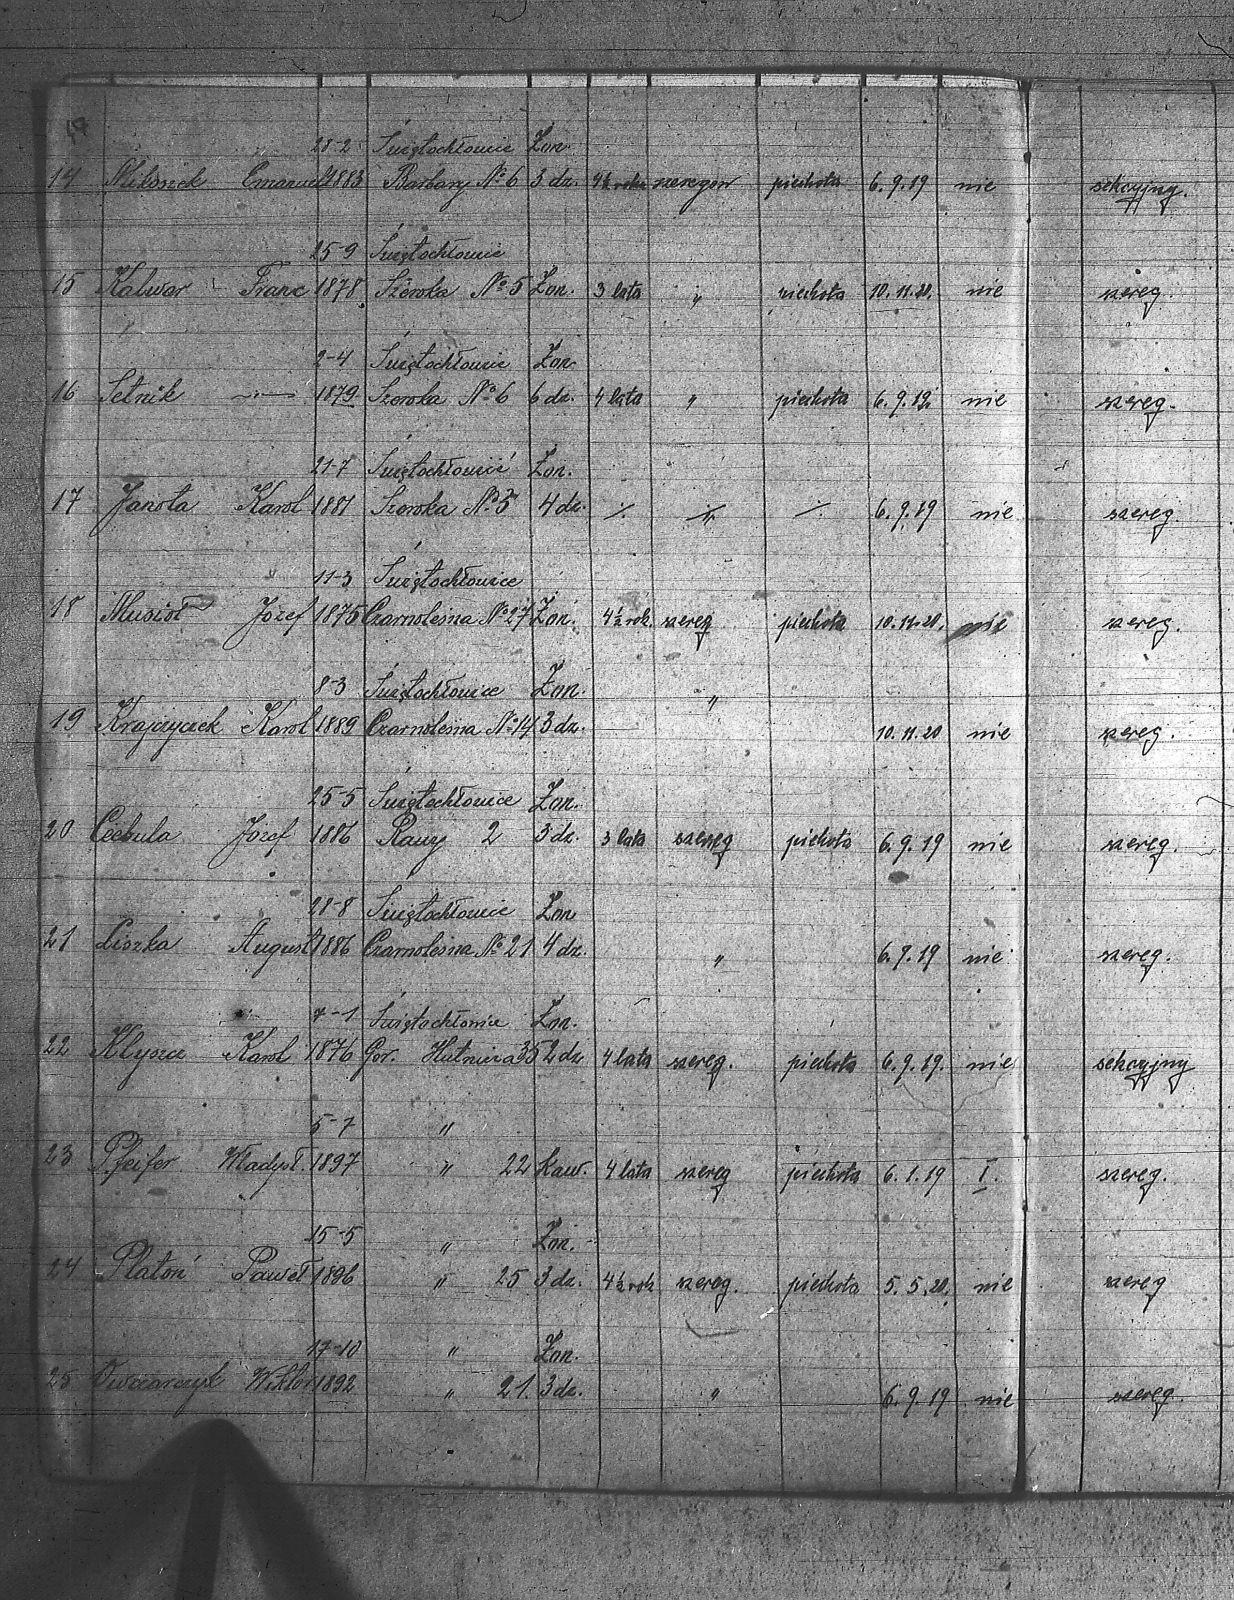 28-2 Świętochłowice Żon.
14 Emanuel 1883 Barbary № 6 3 dz. 4½ roku szeregow piechota 6.9.19 nie sekcyjny.
25-9 Świętochłowice
15 Kalwar Franc 1878 Szeroka № 5 Żon. 3 lata „ piechota 10.11.20. nie szereg.
2-4 Świętochłowice Żon.
16 Setnik —„— 1879 Szeroka № 6 6 dz. 4 lata „ piechota 6.9.19. nie szereg.
21-7 Świętochłowice Żon.
17 Janota Karol 1881 Szeroka № 5 4 dz. ./. ./. ./. 6.9.19 nie szereg.
11-3 Świętochłowice
18 Musioł Józef 1875 Czarnoleśna № 27 Żon. 4½ rok. szereg piechota 10.11.20. nie szereg.
8-3 Świętochłowice Żon. „
19 Krajczyczek Karol 1889 Czarnoleśna № 14 3 dz. 10.11.20 nie szereg.
25-5 Świętochłowice Żon.
20 Cebula Józef 1886 2 3 dz. 3 lata szereg piechota 6.9.19 nie szereg.
28-8 Świętochłowice Żon
21 Liszka August 1886 Czarnoleśna № 21 4 dz. „ 6.9.19 nie szereg.
7-1 Świętochłowice Żon.
22 Klysza Karol 1876 Gór. Hutnicza 35 2 dz. 4 lata szereg. piechota 6.9.19. nie sekcyjny
5-7 „
23 Pfeifer Władysł. 1897 „ 22 kaw. 4 lata szereg piechota 6.1.19 I. szereg.
15-5 „ Żon.
24 Platoń Paweł 1896 „ 25 3 dz. 4½ rok szereg. piechota 5.5.20. nie szereg
17-10 „ Żon.
25 Owczarczyk Wiktor 1892 „ 21. 3 dz. „ 6.9.19 nie szereg.